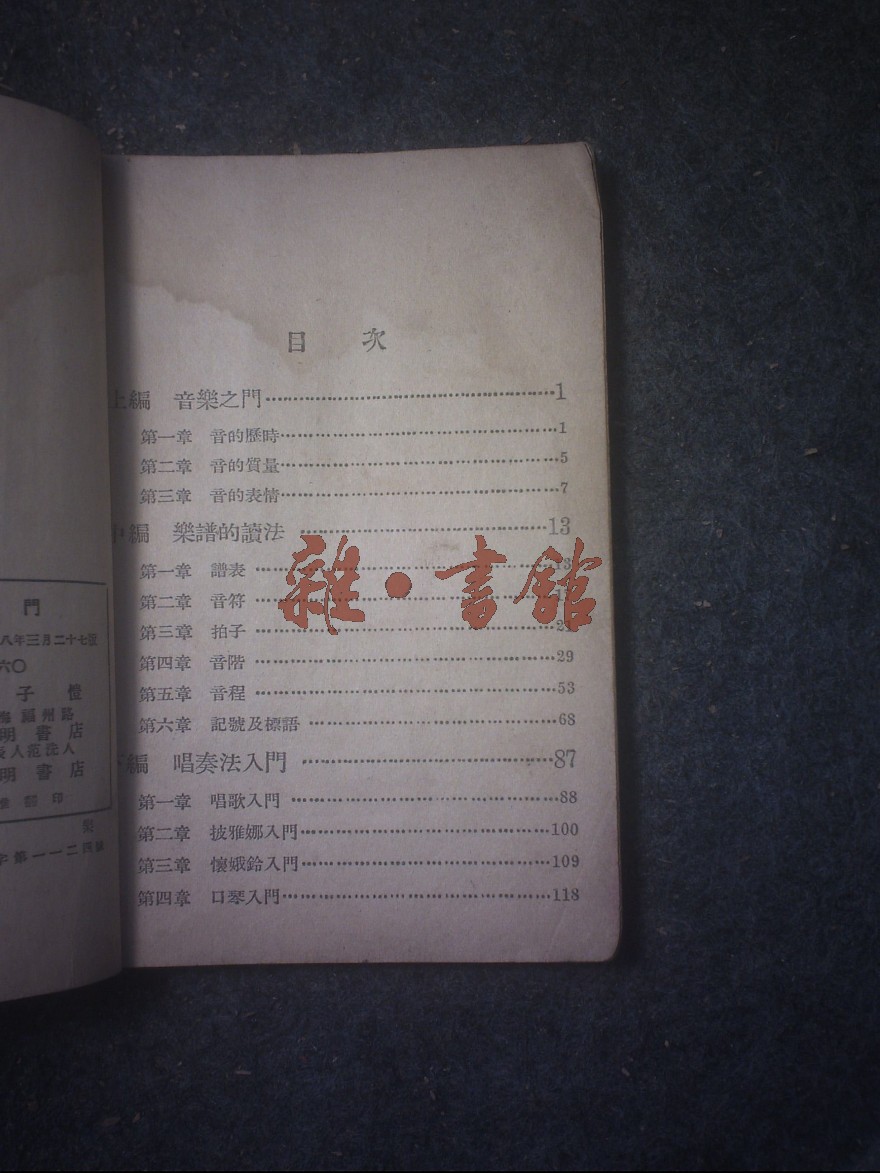 門
八年三月二十七版
六〇
子愷
海福州路
明書店
表人范洗人
明書店
印
字第一一二四號
目　次
上編　音樂之門……1
第一章　音的歷時……1
第二章　音的質量……5
第三章　音的表情……7
中編　樂譜的讀法……13
第一章　譜表……13
第二章　音符……
第三章　拍子……21
第四章　音階……29
第五章　音程……53
第六章　記號及標語……68
下編　唱奏法入門……87
第一章　唱歌入門……88
第二章　披雅娜入門……100
第三章　懷娥鈴入門……109
第四章　口琴入門……118
雜·書館